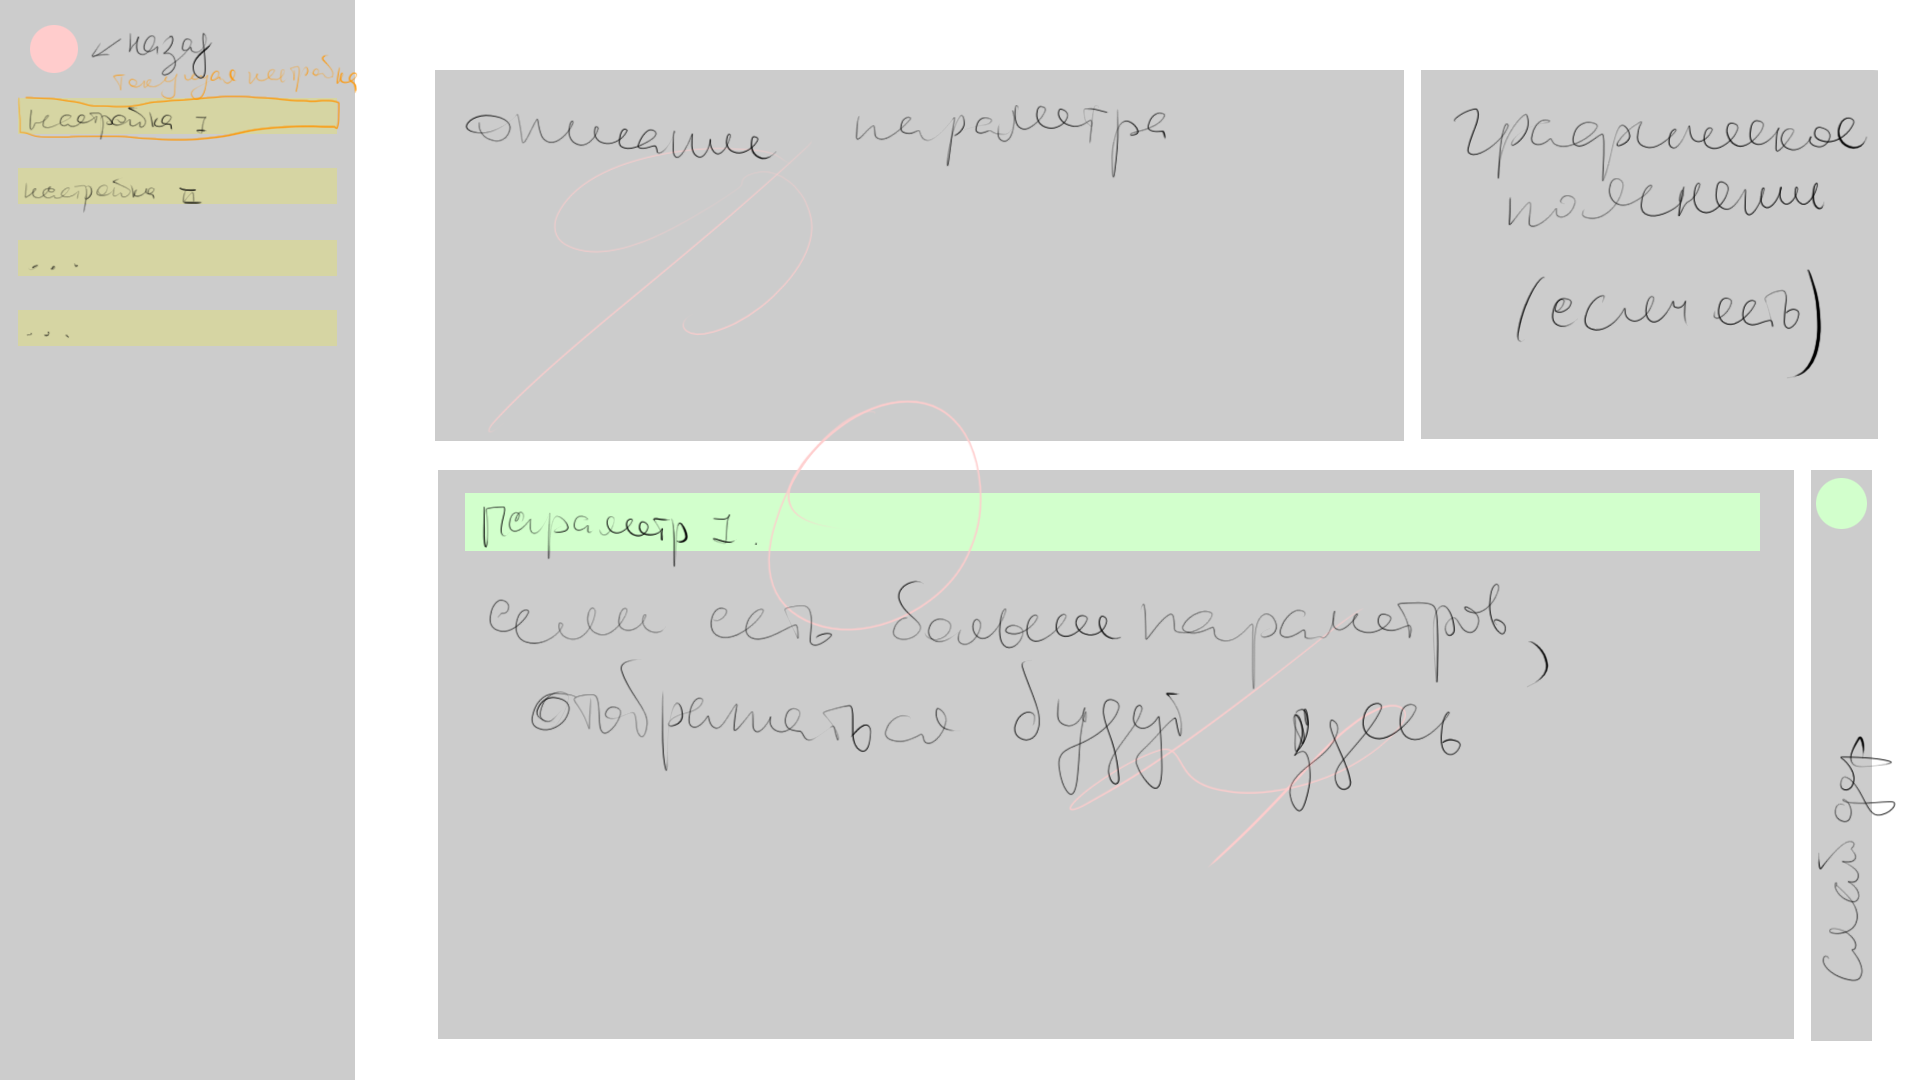 назад
текущая настройка
настройка I
настройка II
...
...
описание параметра
графическое
пояснении
(если есть)
Параметр I.
если есть больше параметров,
отображаться будут здесь
слайдер